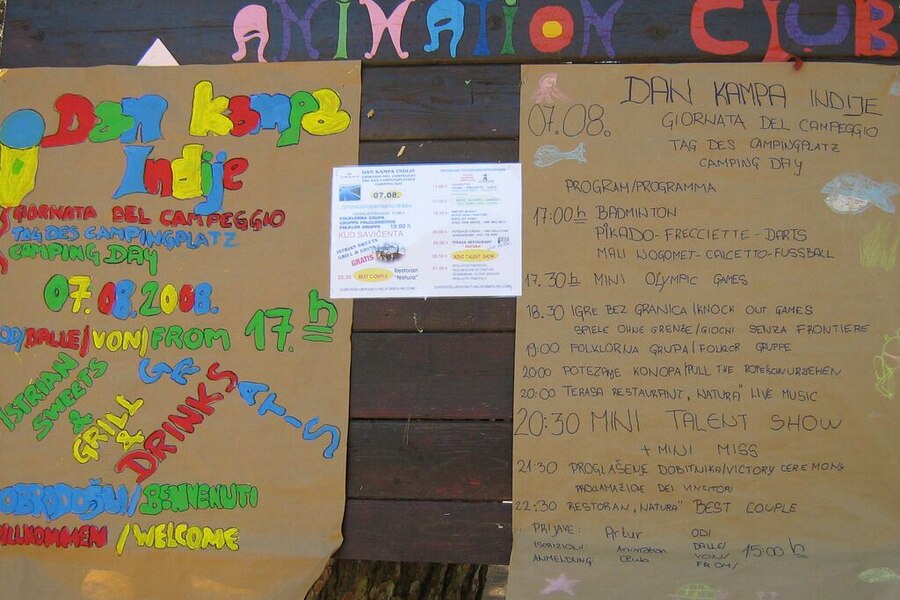 ANIMATION CLUB
Dan kampa
Indije
GIORNATA DEL CAMPEGGIO
TAG DES CAMPINGPLATZ
CAMPING DAY
07.08.2008.
OD/DALLE/VON/FROM 17.h
ISTRIAN
SWEETS
&
GRILL
&
DRINKS
GRATIS
DOBRODOŠLI/BENVENUTI
WILLKOMMEN/WELCOME
DAN KAMPA INDIJE
07.08.
FOLKLORNA GRUPA
GRUPPO FOLCLORISTICO
FOLKLOR GRUPPE
KUD SAVIČENTA
ISTRIAN SWEETS
GRILL & DRINKS
GRATIS
22:30 BEST COUPLE
Restoran
"Natura"
MINI OLYMPIC GAMES
TERASA RESTAURANT
"NATURA"
MINI TALENT SHOW
DAN KAMPA INDIJE
07.08.
GIORNATA DEL CAMPEGGIO
TAG DES CAMPINGPLATZ
CAMPING DAY
PROGRAM/PROGRAMMA
17:00h BADMINTON
PIKADO-FRECCIETTE-DARTS
MALI NOGOMET-CALCETTO-FUSSBALL
17.30h MINI OLYMPIC GAMES
18.30 IGRE BEZ GRANICA/KNOCK OUT GAMES
SPIELE OHNE GRENZE/GIOCHI SENZA FRONTIERE
19:00 FOLKLORNA GRUPA/FOLKLOR GRUPPE
20:00 POTEZANJE KONOPA/PULL THE ROPE/
20:00 TERASA RESTAURANT "NATURA" LIVE MUSIC
20:30 MINI TALENT SHOW
+ MINI MISS
21:30 PROGLAŠENJE DOBITNIKA/VICTORY CEREMONY
PROCLAMAZIONE DEI VINCITORI
22:30 RESTORAN "NATURA" BEST COUPLE
PRIJAVE: Artur OD/
ISCRIZIONI Animation DALLE/
ANMELDUNG Club VON/ 15:00 h
FROM/